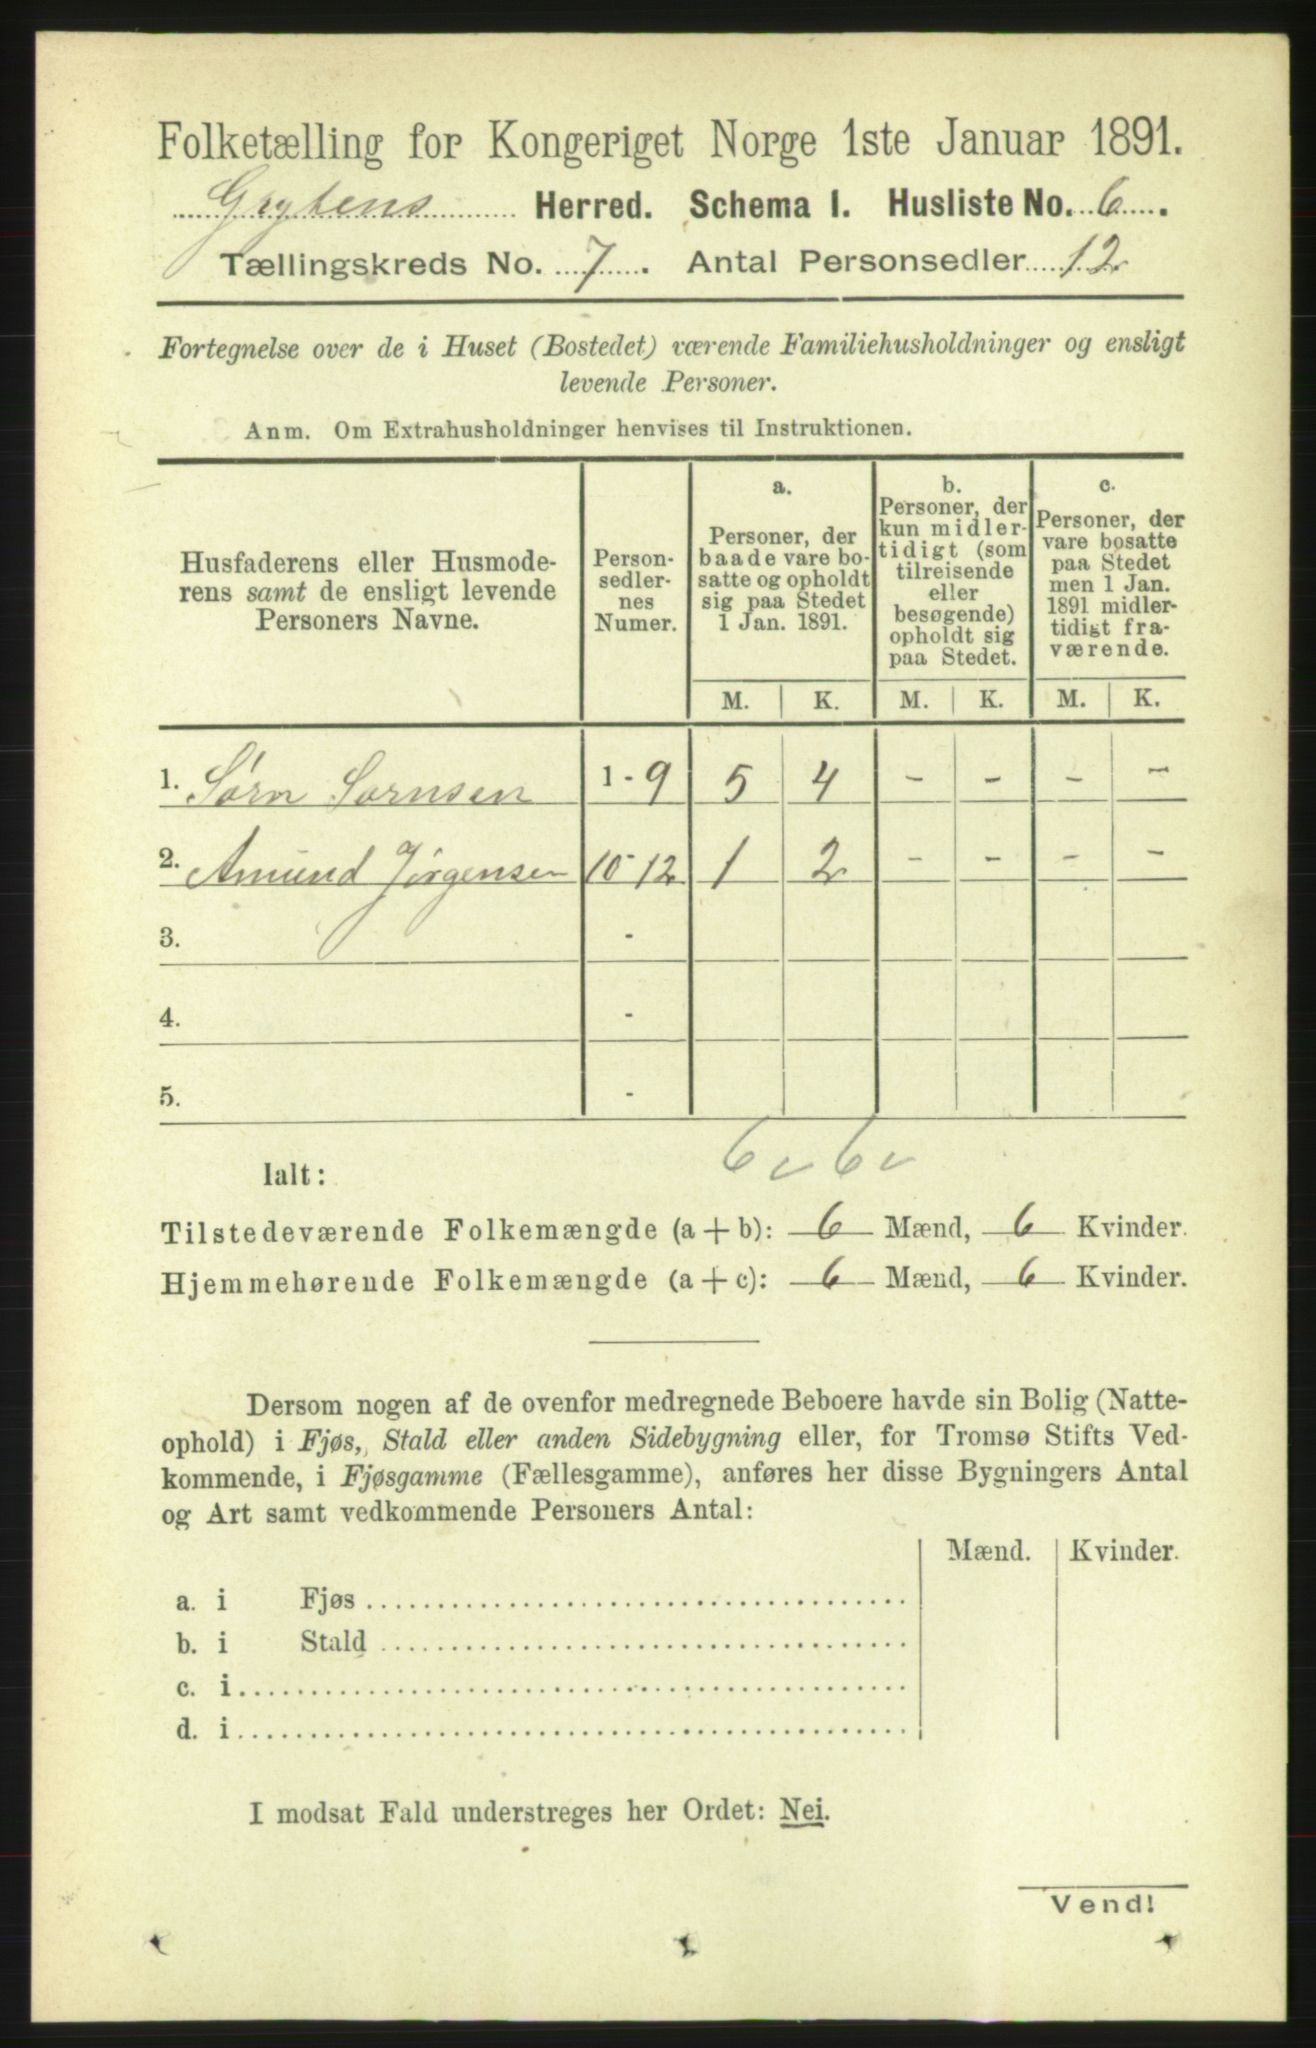 Folketælling for Kongeriget Norge 1ste Januar 1891.
Grytens Herred. Schema I. Husliste No. 6.
Tællingskreds No. 7. Antal Personsedler 12
Fortegnelse over de i Huset (Bostedet) værende Familiehusholdninger og ensligt
levende Personer.
Anm. Om Extrahusholdninger henvises til Instruktionen.
Husfaderens eller Husmode-
rens samt de ensligt levende
Personers Navne.
Person-
sedler-
nes
Numer.
a.
Personer, der
baade vare bo-
satte og opholdt
sig paa Stedet
1 Jan. 1891.
b.
Personer, der
kun midler-
tidigt (som
tilreisende
eller
besøgende)
opholdt sig
paa Stedet.
c.
Personer, der
vare bosatte
paa Stedet
men 1 Jan.
1891 midler-
tidigt fra-
værende.
M. K. M. K. M. K.
1. Sørn Sørnsen 1 - 9 5 4 - - - -
2. Amund Jørgensen 10-12 1 2 - - - -
3. -
4. -
5. -
6 6
Ialt:
Tilstedeværende Folkemængde (a + b): 6 Mænd, 6 Kvinder.
Hjemmehørende Folkemængde (a + c): 6 Mænd, 6 Kvinder.
Dersom nogen af de ovenfor medregnede Beboere havde sin Bolig (Natte-
ophold) i Fjøs, Stald eller anden Sidebygning eller, for Tromsø Stifts Ved-
kommende, i Fjøsgamme (Fællesgamme), anføres her disse Bygningers Antal
og Art samt vedkommende Personers Antal:
Mænd. Kvinder.
a. i Fjøs
b. i Stald
c. i
d. i
I modsat Fald understreges her Ordet: Nei.
Vend!